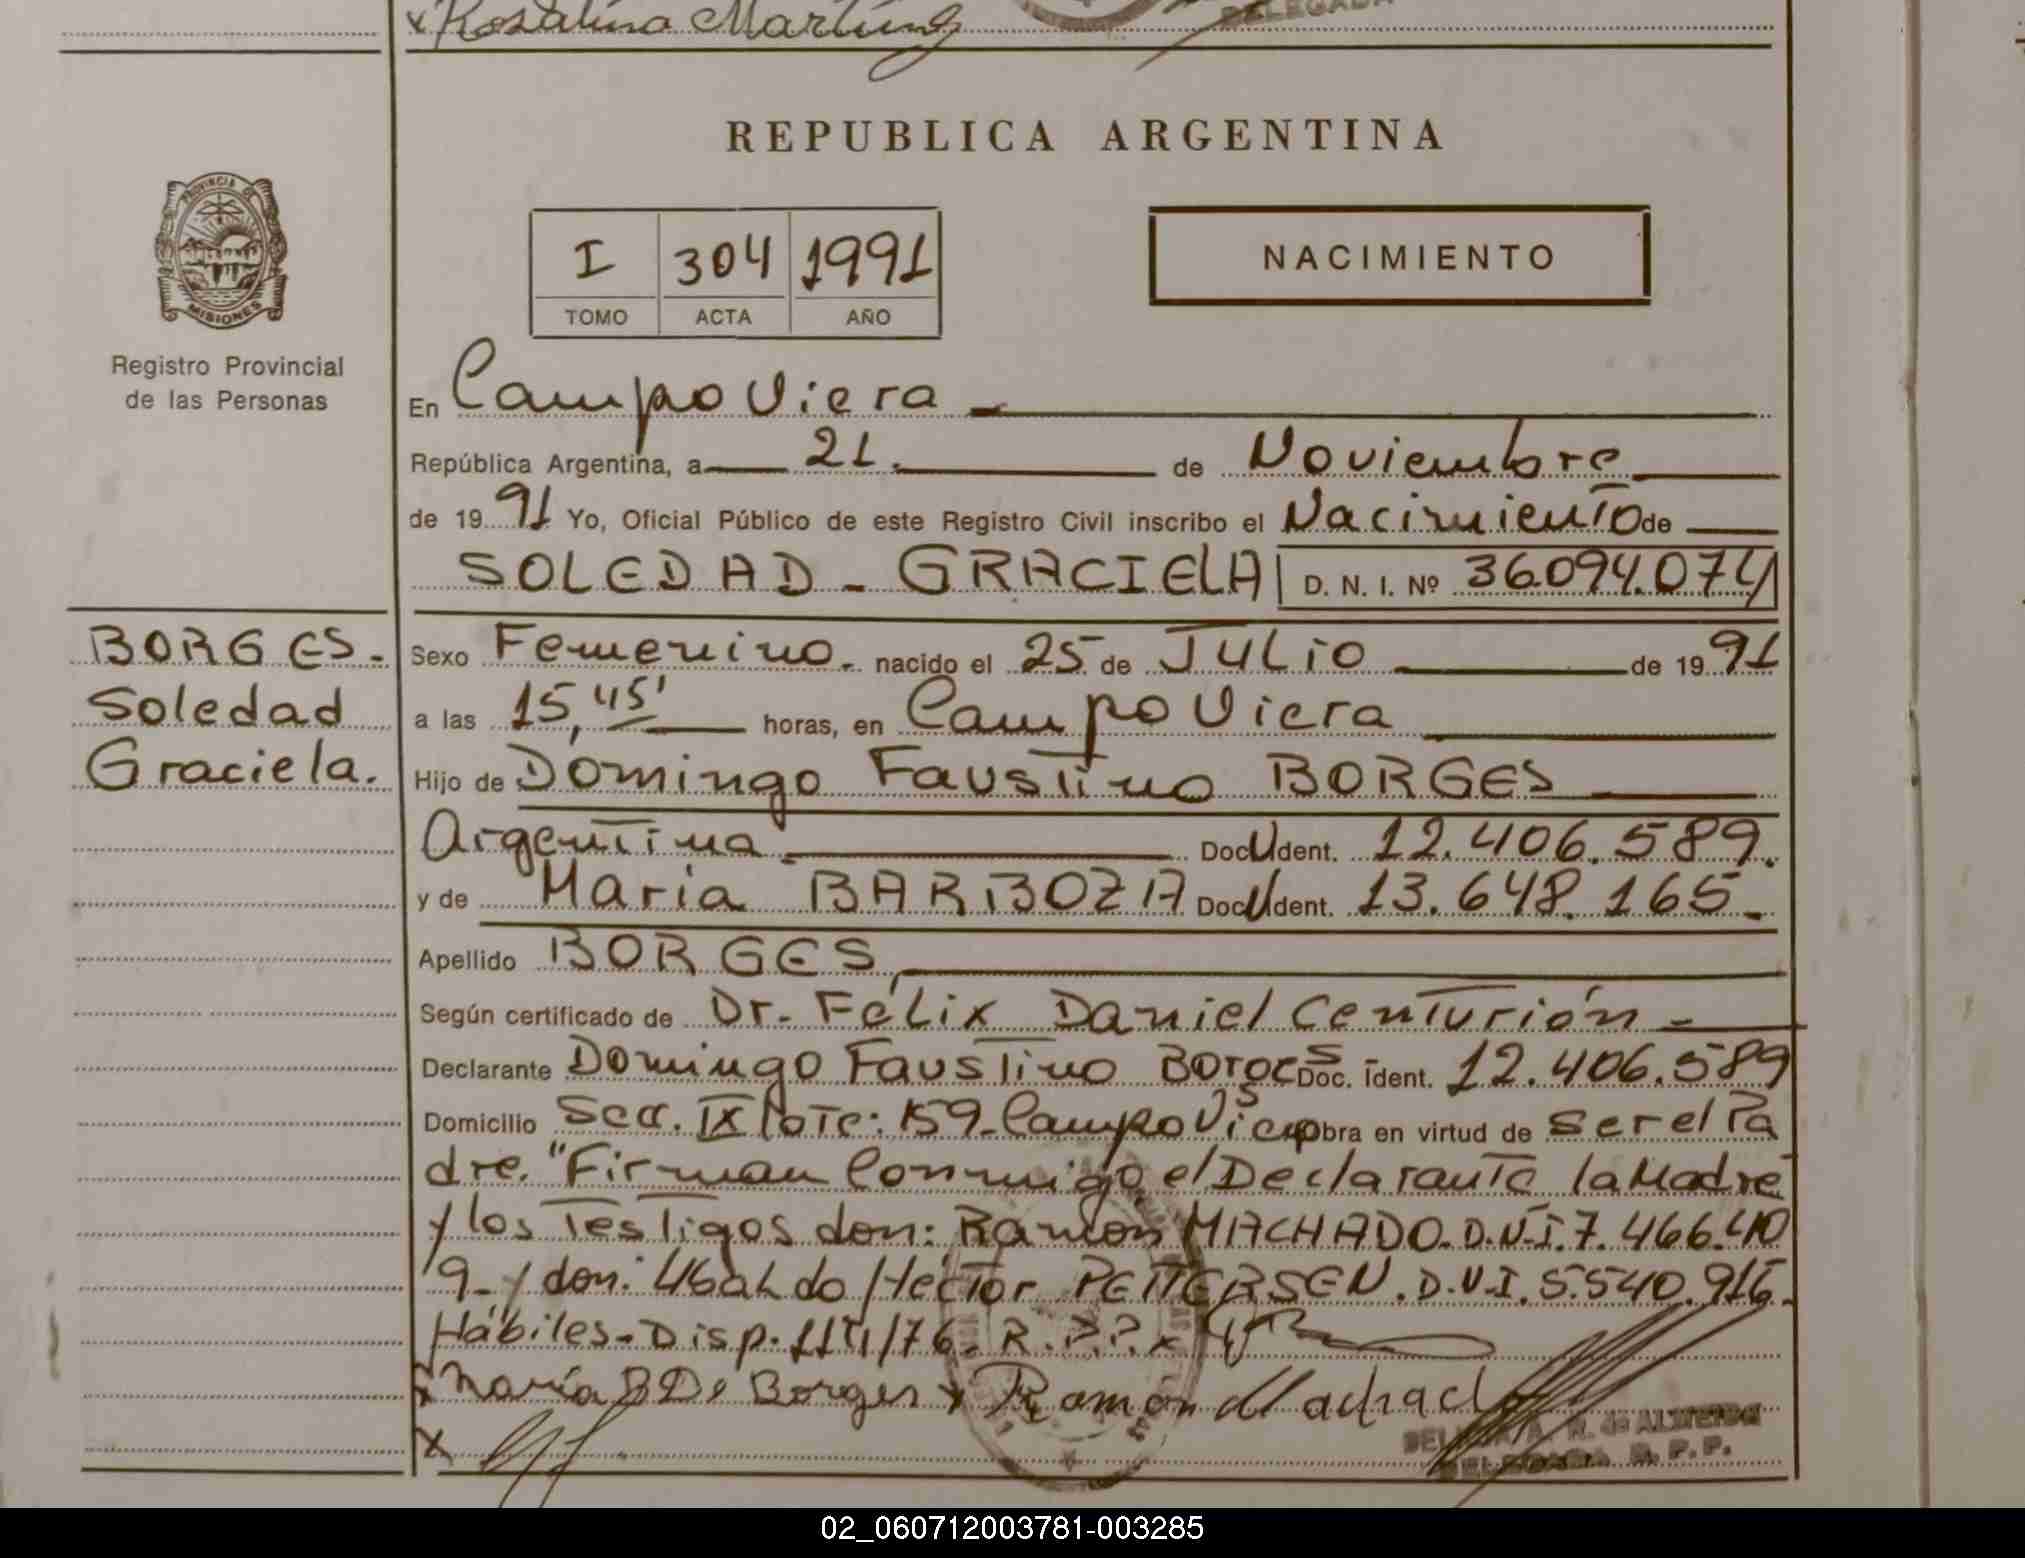 x Rosalino Martinez
DELEGADA
REPUBLICA ARGENTINA
PROVINCIA DE
MISIONES
Registro Provincial
de las Personas
I 304 1991
TOMO ACTA AÑO
NACIMIENTO
En Campo Viera
República Argentina, a 21. de Noviembre
de 19 91 Yo, Oficial Público de este Registro Civil inscribo el Nacimiento de
SOLEDAD - GRACIELA D. N. I. Nº 36.094.074
BORGES.
Soledad
Graciela.
Sexo Femenino. nacido el 25 de JULIO de 19 91
a las 15,45' horas, en Campo Viera
Hijo de Domingo Faustino BORGES
Argentina Doc. Ident. 12.406.589.
y de Maria BARBOZA Doc. Ident. 13.648.165
Apellido BORGES
Según certificado de Dr. Félix Daniel Centurión
Declarante Domingo Faustino Borges Doc. Ident. 12.406.589
Domicilio Secc. IX lote: 159-Campo Viera obra en virtud de ser el Pa
dre. "Firman Conmigo el Declarante la Madre
y los Testigos don: Ramón MACHADO. D.N.I. 7.466.40
9- y don: Ubaldo Héctor PETTERSEN. D.N.I. 5.540.916.
Hábiles- Disp. 114/76. R.P.P. x
x María B De Borges x Ramón Machado
x
R. de ALMEIDA
DELEGADA R. P. P.
02_060712003781-003285